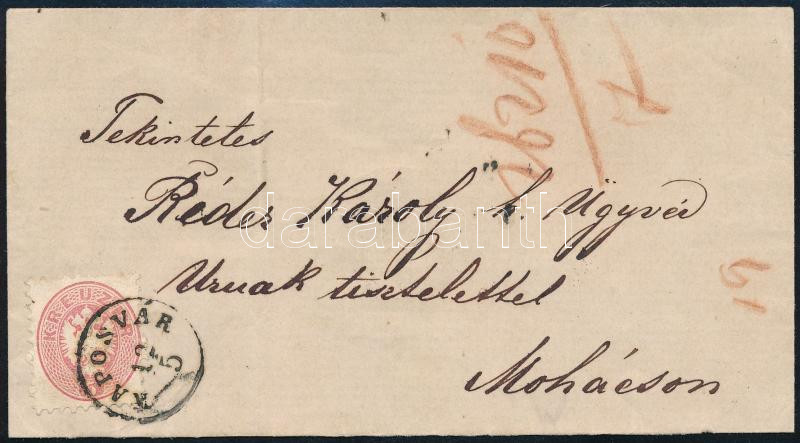 Tekintetes
Réder Károly h. Ügyvéd
Urnak tisztelettel
Mohácson
KREUZER
KAPOSVÁR
darabanth